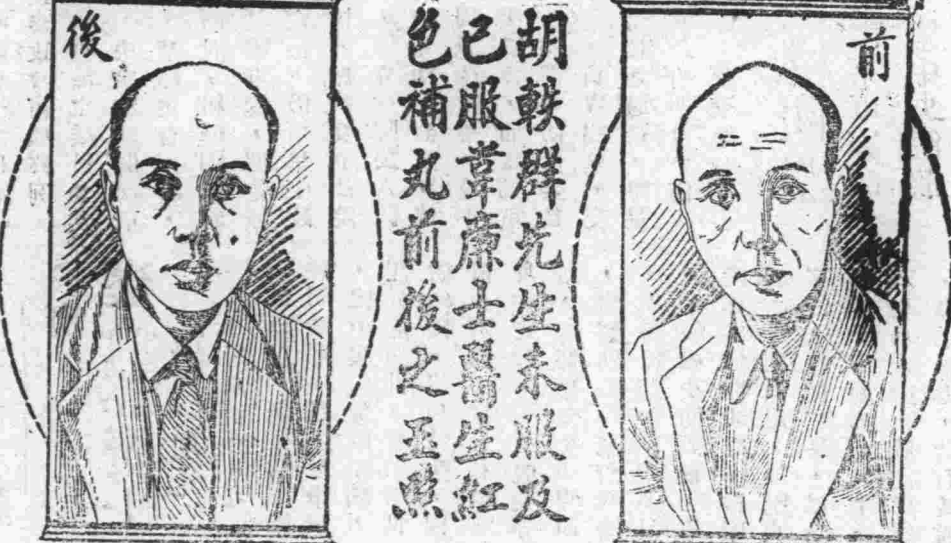 前
胡軼群先生未服及
已服韋廉士醫生紅
色補丸前後之玉照
後